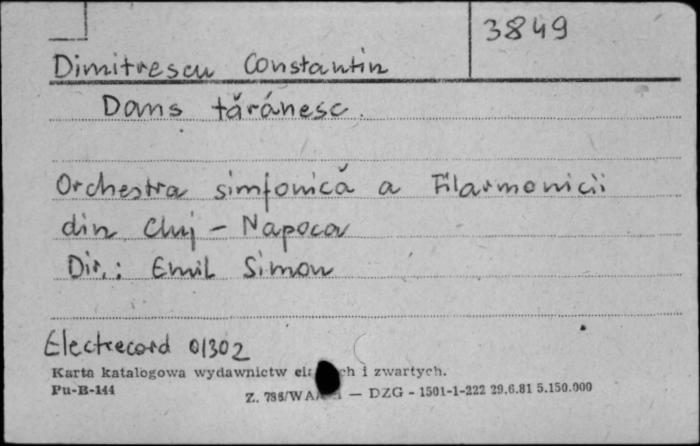 3849
Dimitrescu Constantin
Dans tăránesc.
Orchestra simfonică a Filarmonicii
din Cluj - Napoca
Dir.: Emil Simon
Electrecord 01302
Karta katalogowa wydawnictw i zwartych.
Pu-B-144
— DZG - 1501-1-222 29.6.81 5.150.000